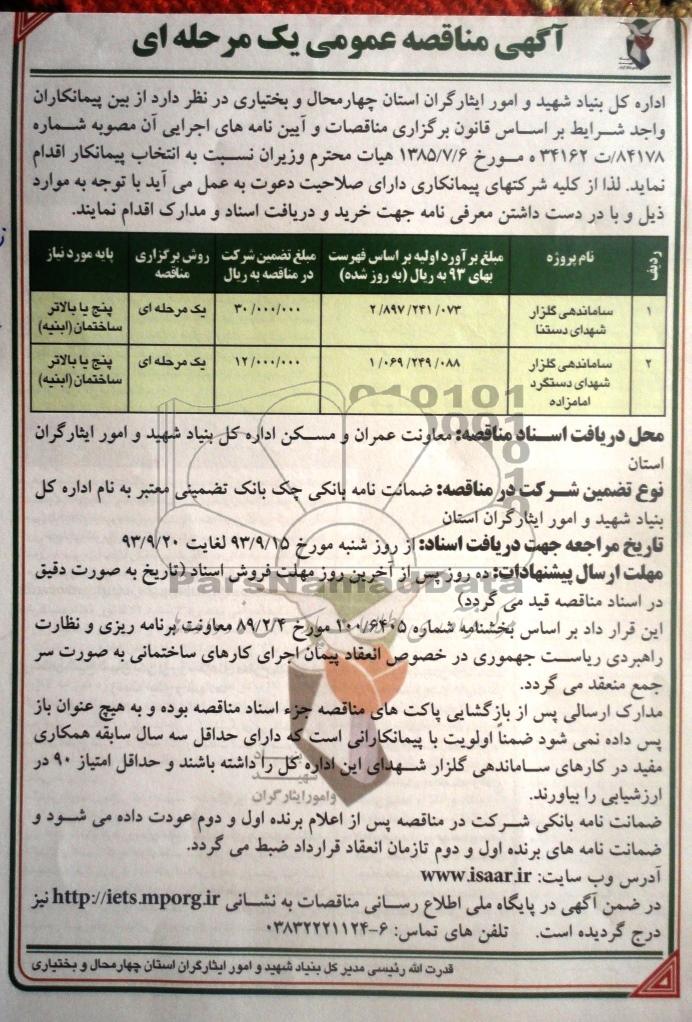 آگهی مناقصه عمومی یک مرحله ای
اداره کل بنیاد شهید و امور ایثارگران استان چهارمحال و بختیاری در نظر دارد از بین پیمانکاران
واجد شرایط بر اساس قانون برگزاری مناقصات و آیین نامه های اجرایی آن مصوبه شماره
۸۴۱۷۸/ت ۳۴۱۶۲ ه مورخ ۱۳۸۵/۷/۶ هیات محترم وزیران نسبت به انتخاب پیمانکار اقدام
نماید. لذا از کلیه شرکتهای پیمانکاری دارای صلاحیت دعوت به عمل می آید با توجه به موارد
ذیل و با در دست داشتن معرفی نامه جهت خرید و دریافت اسناد و مدارک اقدام نمایند.
ردیف نام پروژه مبلغ برآورد اولیه بر اساس فهرست بهای ۹۳ به ریال (به روز شده) مبلغ تضمین شرکت در مناقصه به ریال روش برگزاری مناقصه پایه مورد نیاز
۱ ساماندهی گلزار شهدای دستنا ۲/۸۹۷/۲۴۱/۰۷۳ ۳۰/۰۰۰/۰۰۰ یک مرحله ای پنج یا بالاتر ساختمان(ابنیه)
۲ ساماندهی گلزار شهدای دستگرد امامزاده ۱/۰۶۹/۲۴۹/۰۸۸ ۱۲/۰۰۰/۰۰۰ یک مرحله ای پنج یا بالاتر ساختمان(ابنیه)
محل دریافت اسناد مناقصه: معاونت عمران و مسکن اداره کل بنیاد شهید و امور ایثارگران
استان
نوع تضمین شرکت در مناقصه: ضمانت نامه بانکی چک بانک تضمینی معتبر به نام اداره کل
بنیاد شهید و امور ایثارگران استان
تاریخ مراجعه جهت دریافت اسناد: از روز شنبه مورخ ۹۳/۹/۱۵ لغایت ۹۳/۹/۲۰
مهلت ارسال پیشنهادات: ده روز پس از آخرین روز مهلت فروش اسناد (تاریخ به صورت دقیق
در اسناد مناقصه قید می گردد)
این قرار داد بر اساس بخشنامه شماره ۱۰۰/۶۴۰۵ مورخ ۸۹/۲/۴ معاونت برنامه ریزی و نظارت
راهبردی ریاست جمهوری در خصوص انعقاد پیمان اجرای کارهای ساختمانی به صورت سر
جمع منعقد می گردد.
مدارک ارسالی پس از بازگشایی پاکت های مناقصه جزء اسناد مناقصه بوده و به هیچ عنوان باز
پس داده نمی شود ضمناً اولویت با پیمانکارانی است که دارای حداقل سه سال سابقه همکاری
مفید در کارهای ساماندهی گلزار شهدای این اداره کل را داشته باشند و حداقل امتیاز ۹۰ در
ارزشیابی را بیاورند.
ضمانت نامه بانکی شرکت در مناقصه پس از اعلام برنده اول و دوم عودت داده می شود و
ضمانت نامه های برنده اول و دوم تازمان انعقاد قرارداد ضبط می گردد.
آدرس وب سایت: www.isaar.ir
در ضمن آگهی در پایگاه ملی اطلاع رسانی مناقصات به نشانی http://iets.mporg.ir نیز
درج گردیده است. تلفن های تماس: ۶-۰۳۸۳۲۲۲۱۱۲۴
قدرت الله رئیسی مدیر کل بنیاد شهید و امور ایثارگران استان چهارمحال و بختیاری
ParsNamadData
شهید
وامور ایثارگران